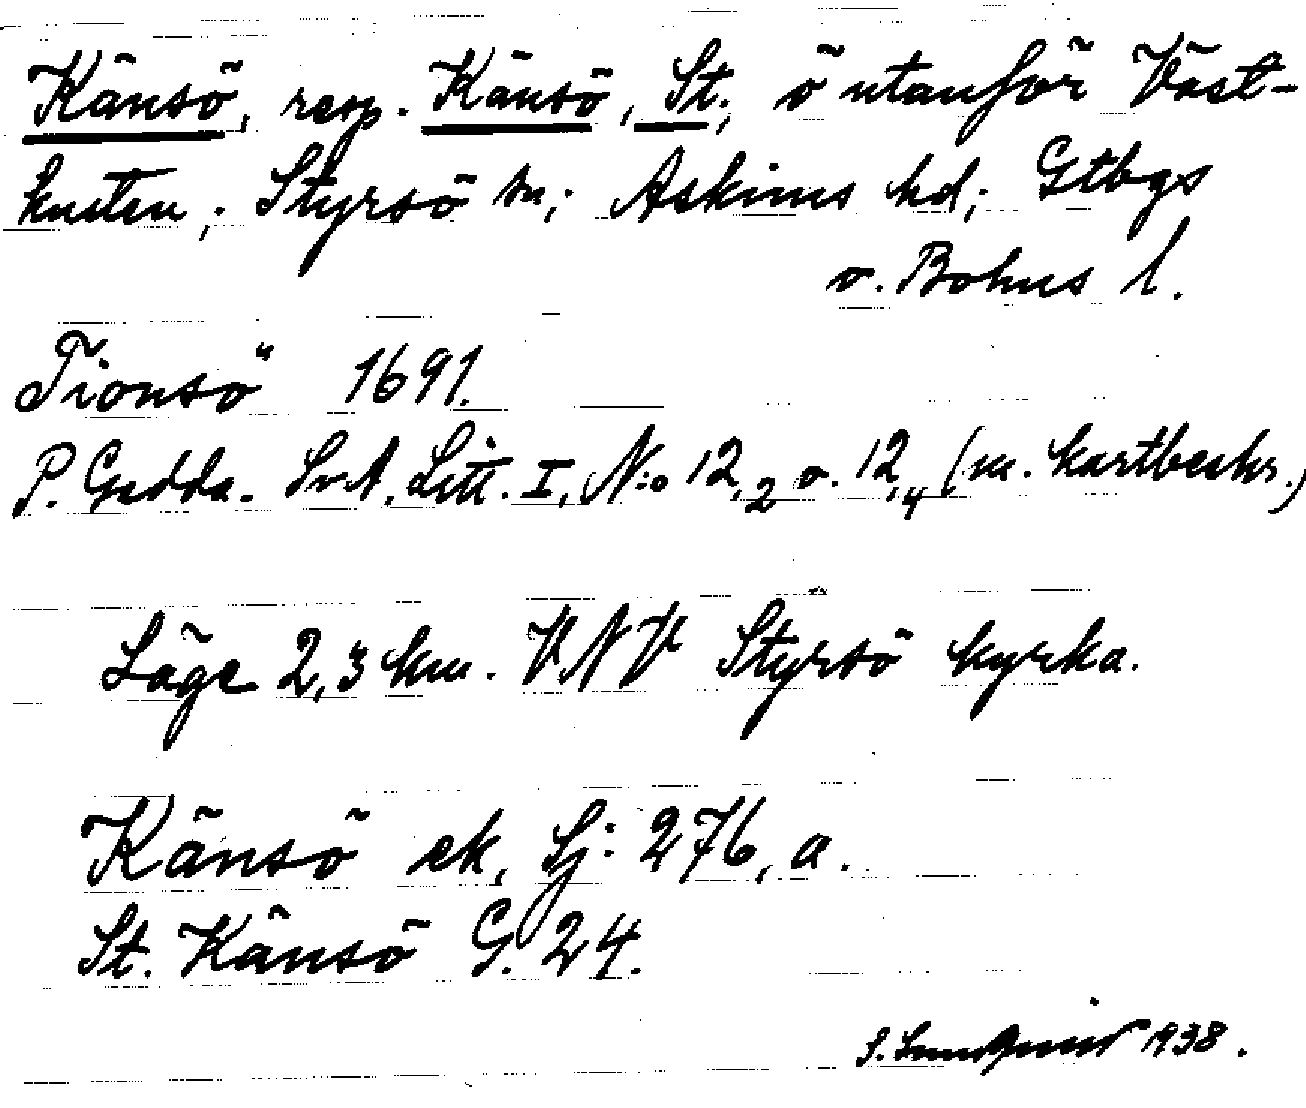 Känsö, resp. Känsö, St., ö utanför Väst-
kusten; Styrsö sn; Askims hd; Gtbgs
o. Bohus l.
Tionsö 1691.
P. Gedda. SvA. Litt. I, N:o 12,2 o. 12,4 (m. kartbeskr.)
Läge 2,3 km. VNV Styrsö kyrka.
Känsö ek, Sj: 276, a.
St. Känsö G. 24.
1938.